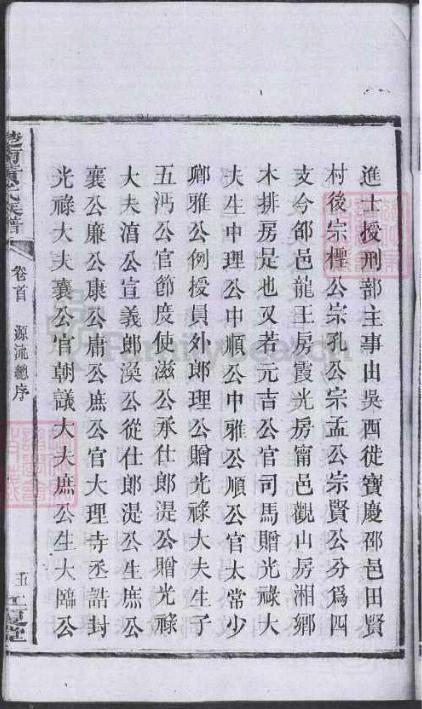 進士授刑部主事由吳西徙寶慶邵邑田賢
村後宗檉公宗孔公宗孟公宗賢公分爲四
支今邵邑龍王房霞光房甯邑觀山房湘鄉
木排房是也又若元吉公官司馬贈光祿大
夫生中理公中順公中雅公順公官太常少
卿雅公例授員外郎理公贈光祿大夫生子
五沔公官節度使滋公承仕郎湜公贈光祿
大夫湻公宣義郎渙公從仕郎湜公生庶公
襄公廉公康公庸公庶公官大理寺丞誥封
光祿大夫襄公官朝議大夫庶公生大臨公
卷首 源流總序